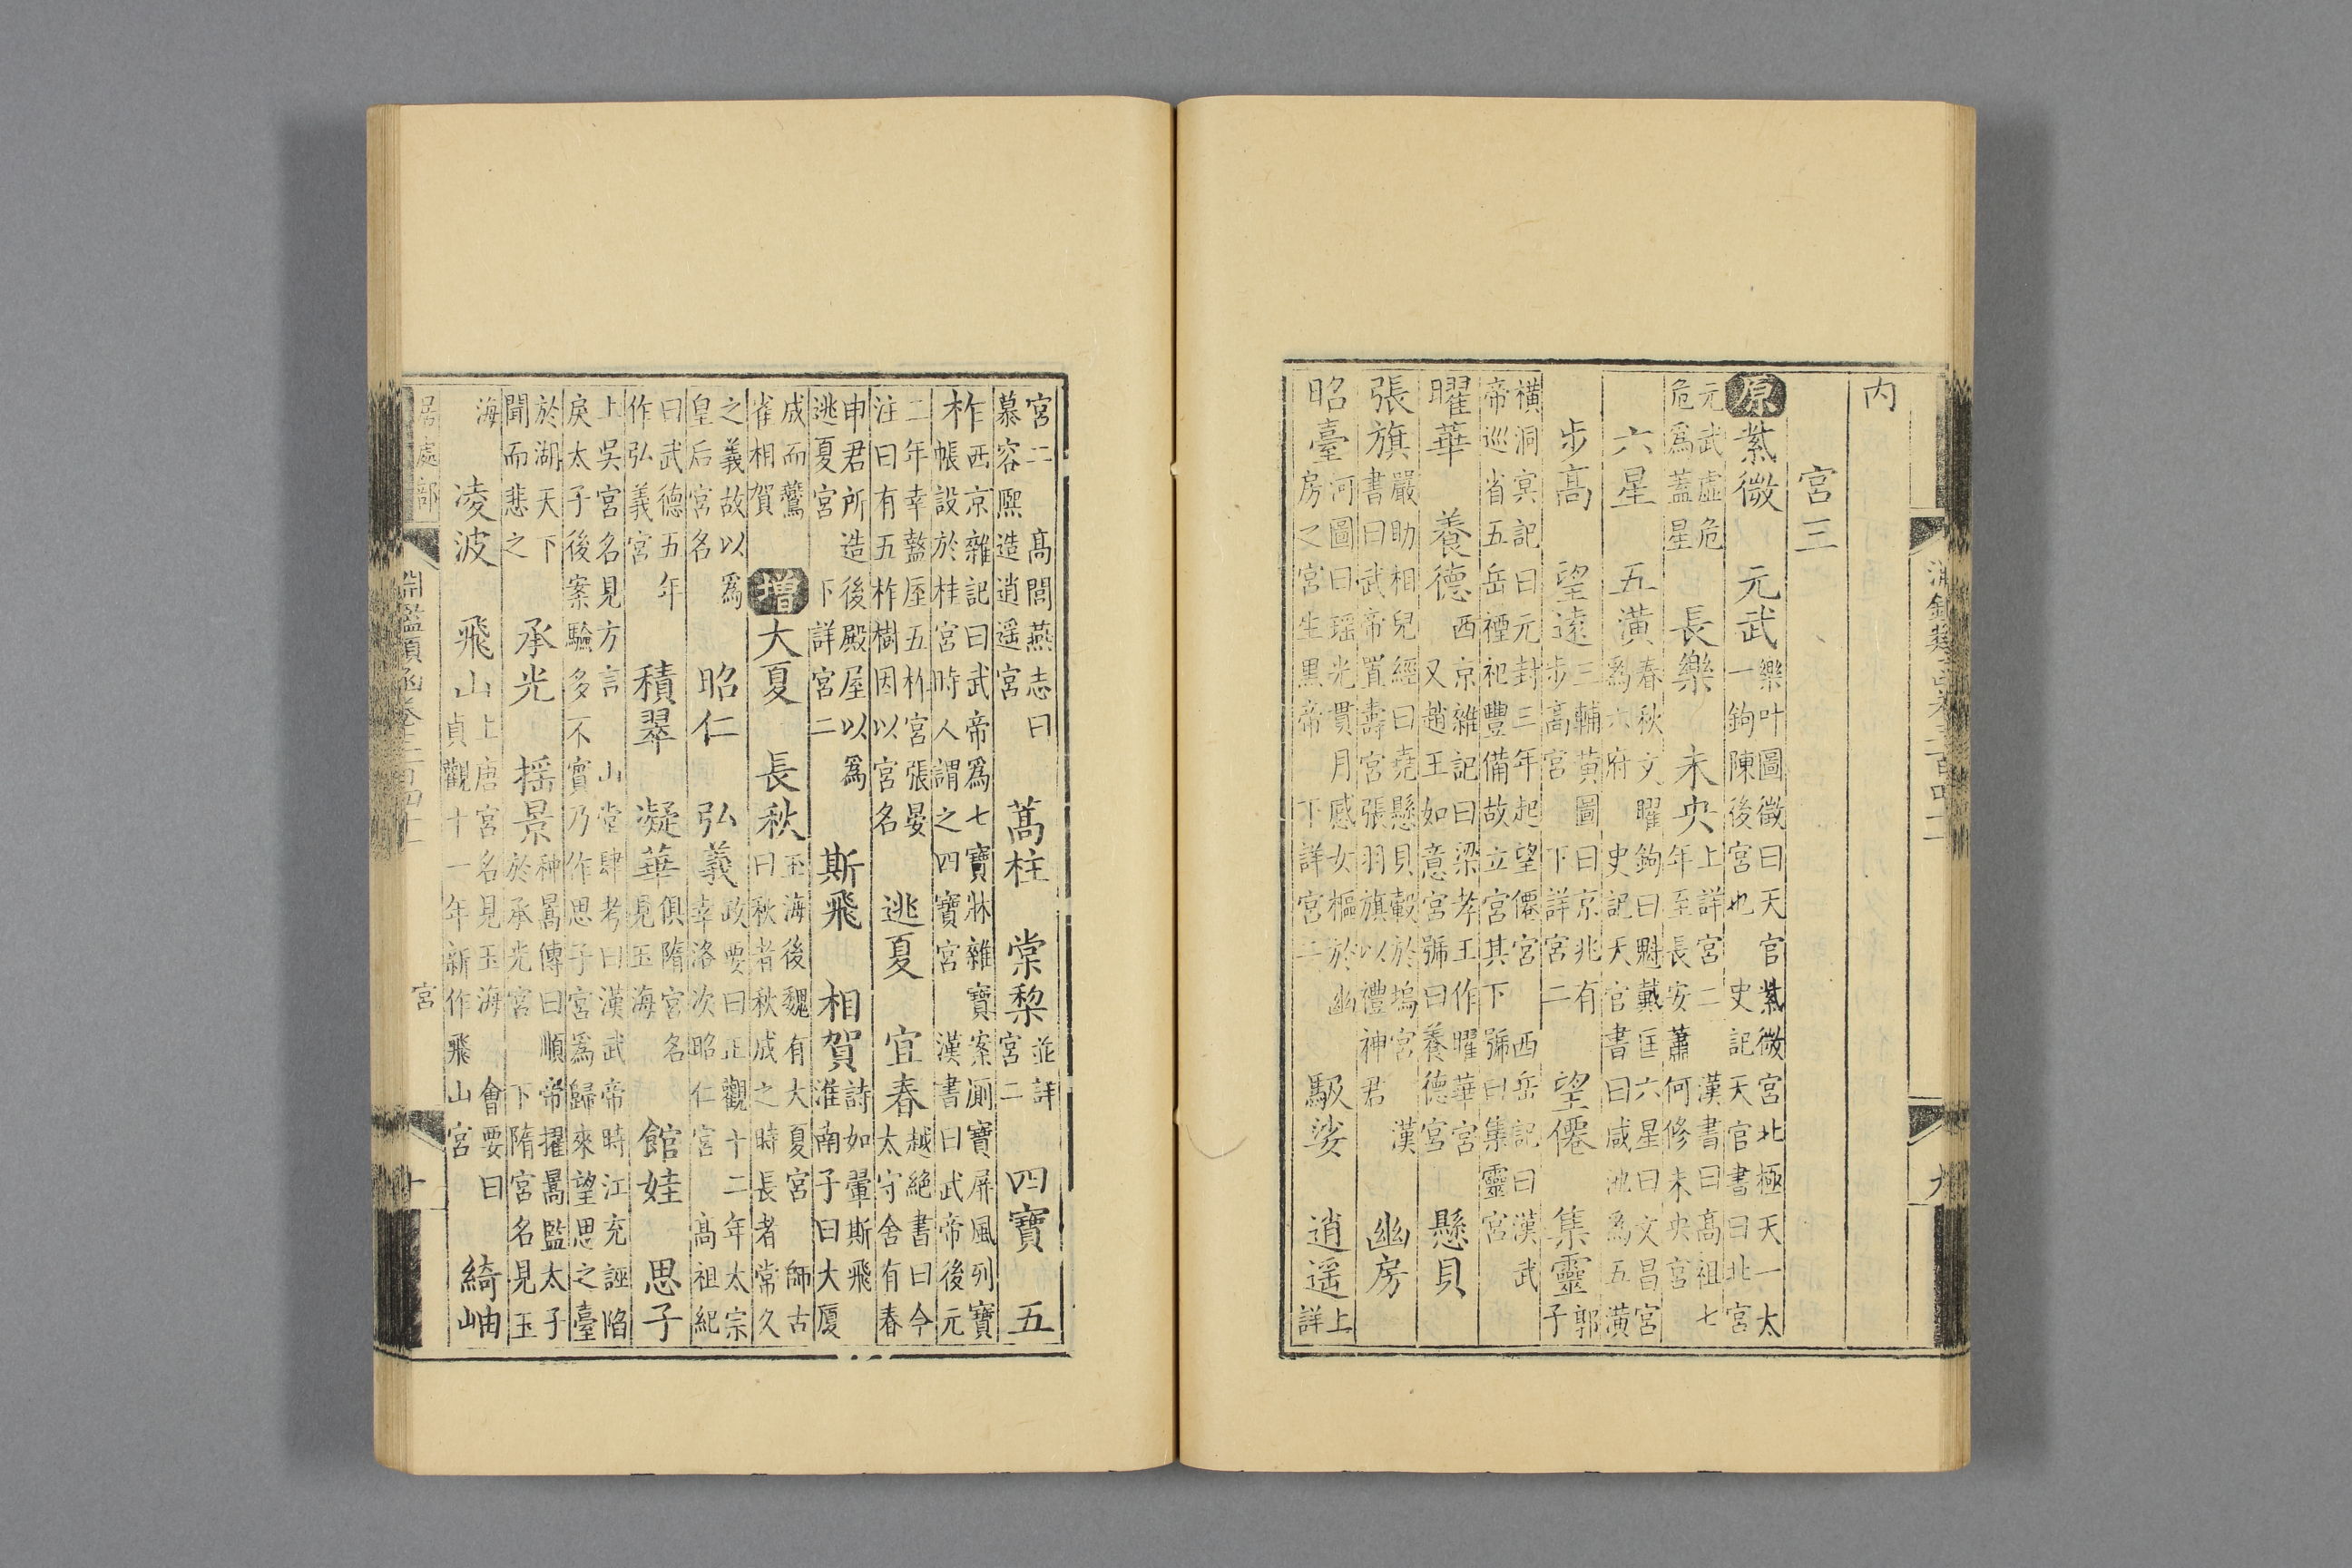 内
宮三
原紫微 元武
樂叶圖徵曰天官紫微宮北極天一太
一鉤陳後宮也 史記天官書曰北宮
元武虛危
危爲蓋星
長樂 未央
上詳宮二 漢書曰高祖七
年至長安蕭何修未央宮
六星 五潢
春秋文曜鉤曰魁戴匡六星曰文昌宮
爲六府 史記天官書曰咸池爲五潢
步高 望遠
三輔黃圖曰京兆有
步高宮下詳宮二
望僊 集靈
郭
子
橫洞冥記曰元封三年起望僊宮 西岳記曰漢武
帝巡省五岳禋祀豐備故立宮其下號曰集靈宮
曜華 養德
西京雜記曰梁孝王作曜華宮
又趙王如意宮號曰養德宮
懸貝
張旗
嚴助相兒經曰堯懸貝轂於塢宮 漢
書曰武帝置壽宮張羽旗以禮神君
幽房
昭臺
河圖曰瑶光貫月感女樞於幽
房之宮生黑帝 下詳宮二
馺娑 逍遥
上
詳
宮二 高閭燕志曰
慕容熙造逍遥宮
蒿柱 棠棃
並詳
宮二
四寶 五
柞
西京雜記曰武帝爲七寶牀雜寶案厠寶屏風列寶
帳設於桂宮時人謂之四寶宮 漢書曰武帝後元
二年幸盩厔五柞宮張晏
注曰有五柞樹因以宮名
逃夏 宜春
越絶書曰今
太守舍有春
申君所造後殿屋以爲
逃夏宮 下詳宮二
斯飛 相賀
詩如翬斯飛
淮南子曰大厦
成而鷰
雀相賀
增大夏 長秋
玉海後魏有大夏宮 師古
曰秋者秋成之時長者常久
之義故以爲
皇后宮名
昭仁 弘義
政要曰正觀十二年太宗
幸洛次昭仁宮 高祖紀
曰武德五年
作弘義宮
積翠 凝華
俱隋宮名
見玉海
館娃 思子
上吳宮名見方言 山堂肆考曰漢武帝時江充誣陷
戾太子後案驗多不實乃作思子宮爲歸來望思之臺
於湖天下
聞而悲之
承光 揺景
种暠傳曰順帝擢暠監太子
於承光宮 下隋宮名見玉
海
凌波 飛山
上唐宮名見玉海 會要曰
貞觀十一年新作飛山宮
綺岫
居處部 淵鑑類函卷三百四十二 宮